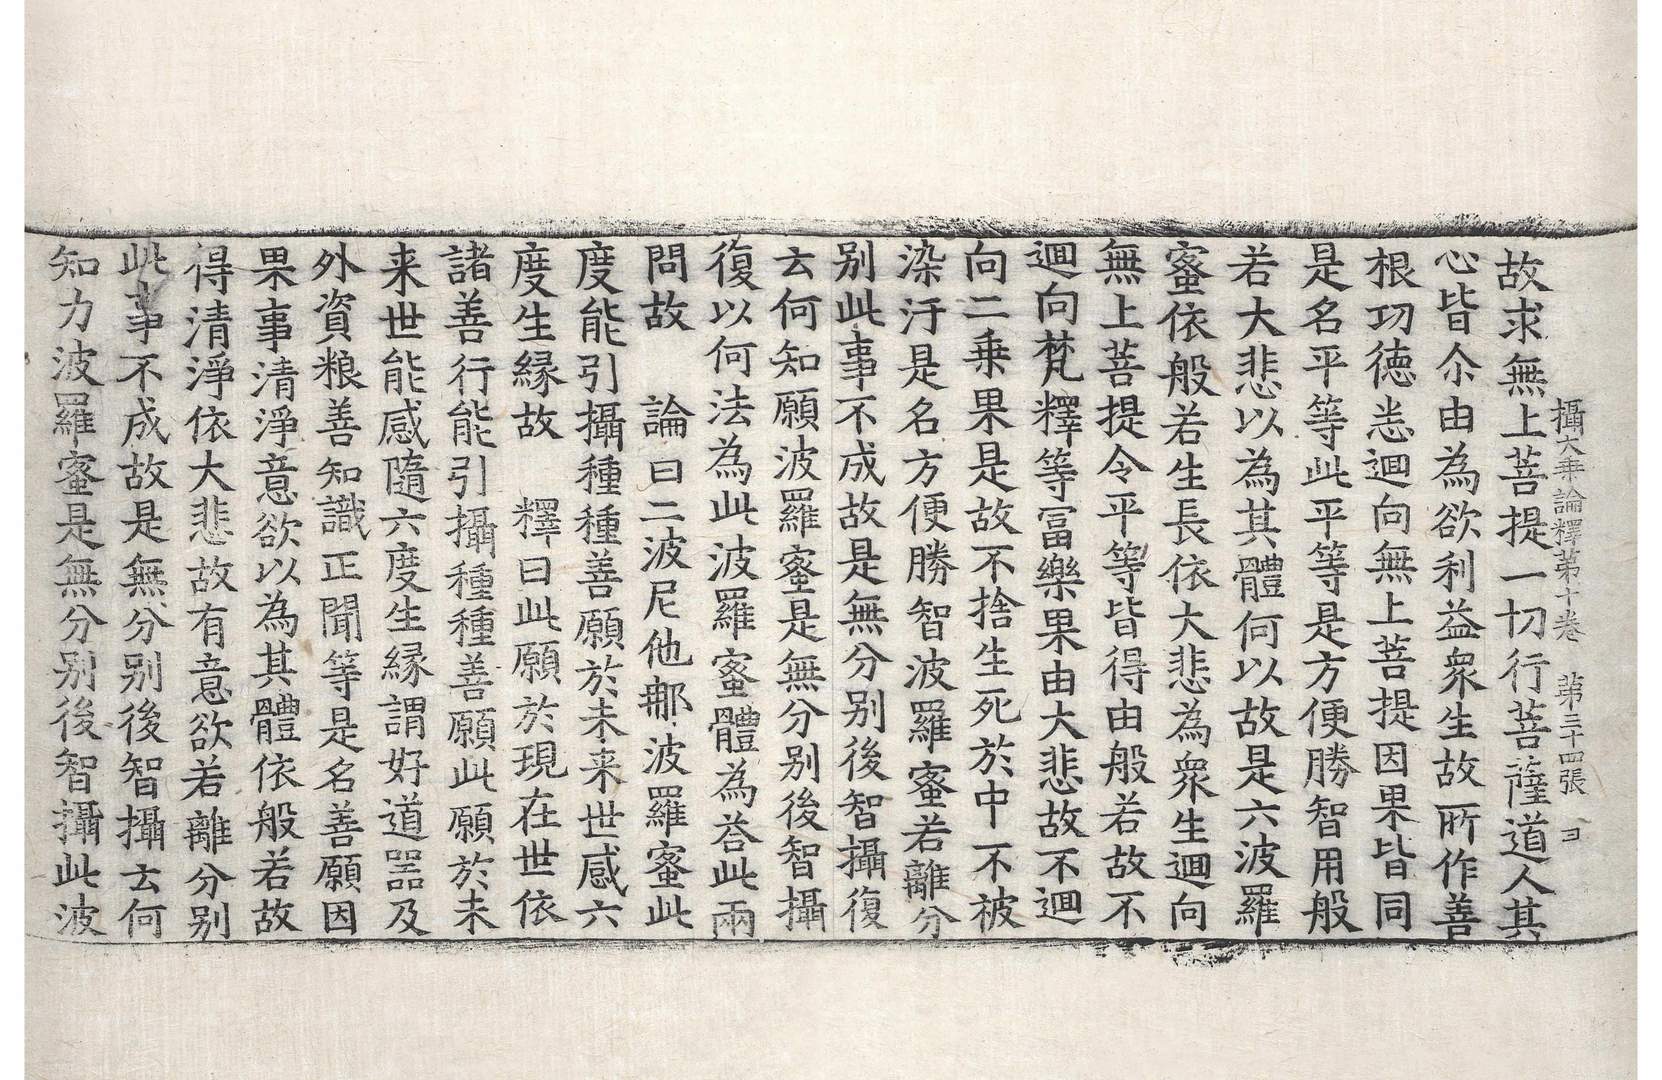 攝大乘論釋第十卷　第三十四張　ヨ
故求無上菩提一切行菩薩道人其
心皆尒由為欲利益衆生故所作善
根功德恙迴向無上菩提因果皆同
是名平等此平等是方便勝智用般
若大悲以為其體何以故是六波羅
蜜依般若生長依大悲為衆生迴向
無上菩提令平等皆得由般若故不
迴向梵釋等冨樂果由大悲故不迴
向二乗果是故不捨生死於中不被
染汙是名方便勝智波羅蜜若離分
别此事不成故是無分别後智攝復
云何知願波羅蜜是無分别後智攝
復以何法為此波羅蜜體為荅此兩
問故　論曰二波尼他那波羅蜜此
度能引攝種種善願於未来世感六
度生縁故　釋曰此願於現在世依
諸善行能引攝種種善願此願於未
来世能感隨六度生縁謂好道器及
外資粮善知識正聞等是名善願因
果事清淨意欲以為其體依般若故
得清淨依大悲故有意欲若離分别
此事不成故是無分别後智攝云何
知力波羅蜜是無分别後智攝此波